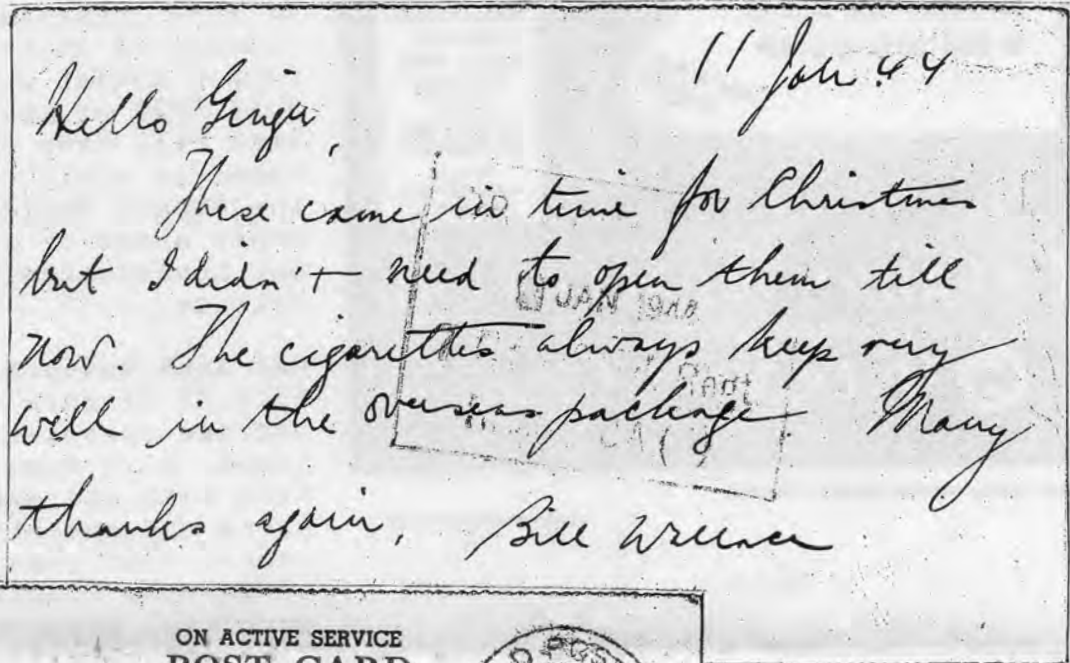 11 Jan 44
Hello Ginger,
These came in time for Christmas
but I didn't need to open them till
now. The cigarettes always keep very
well in the overseas package Many
thanks again, Bill Wallace
JAN 1944
ON ACTIVE SERVICE
POST CARD